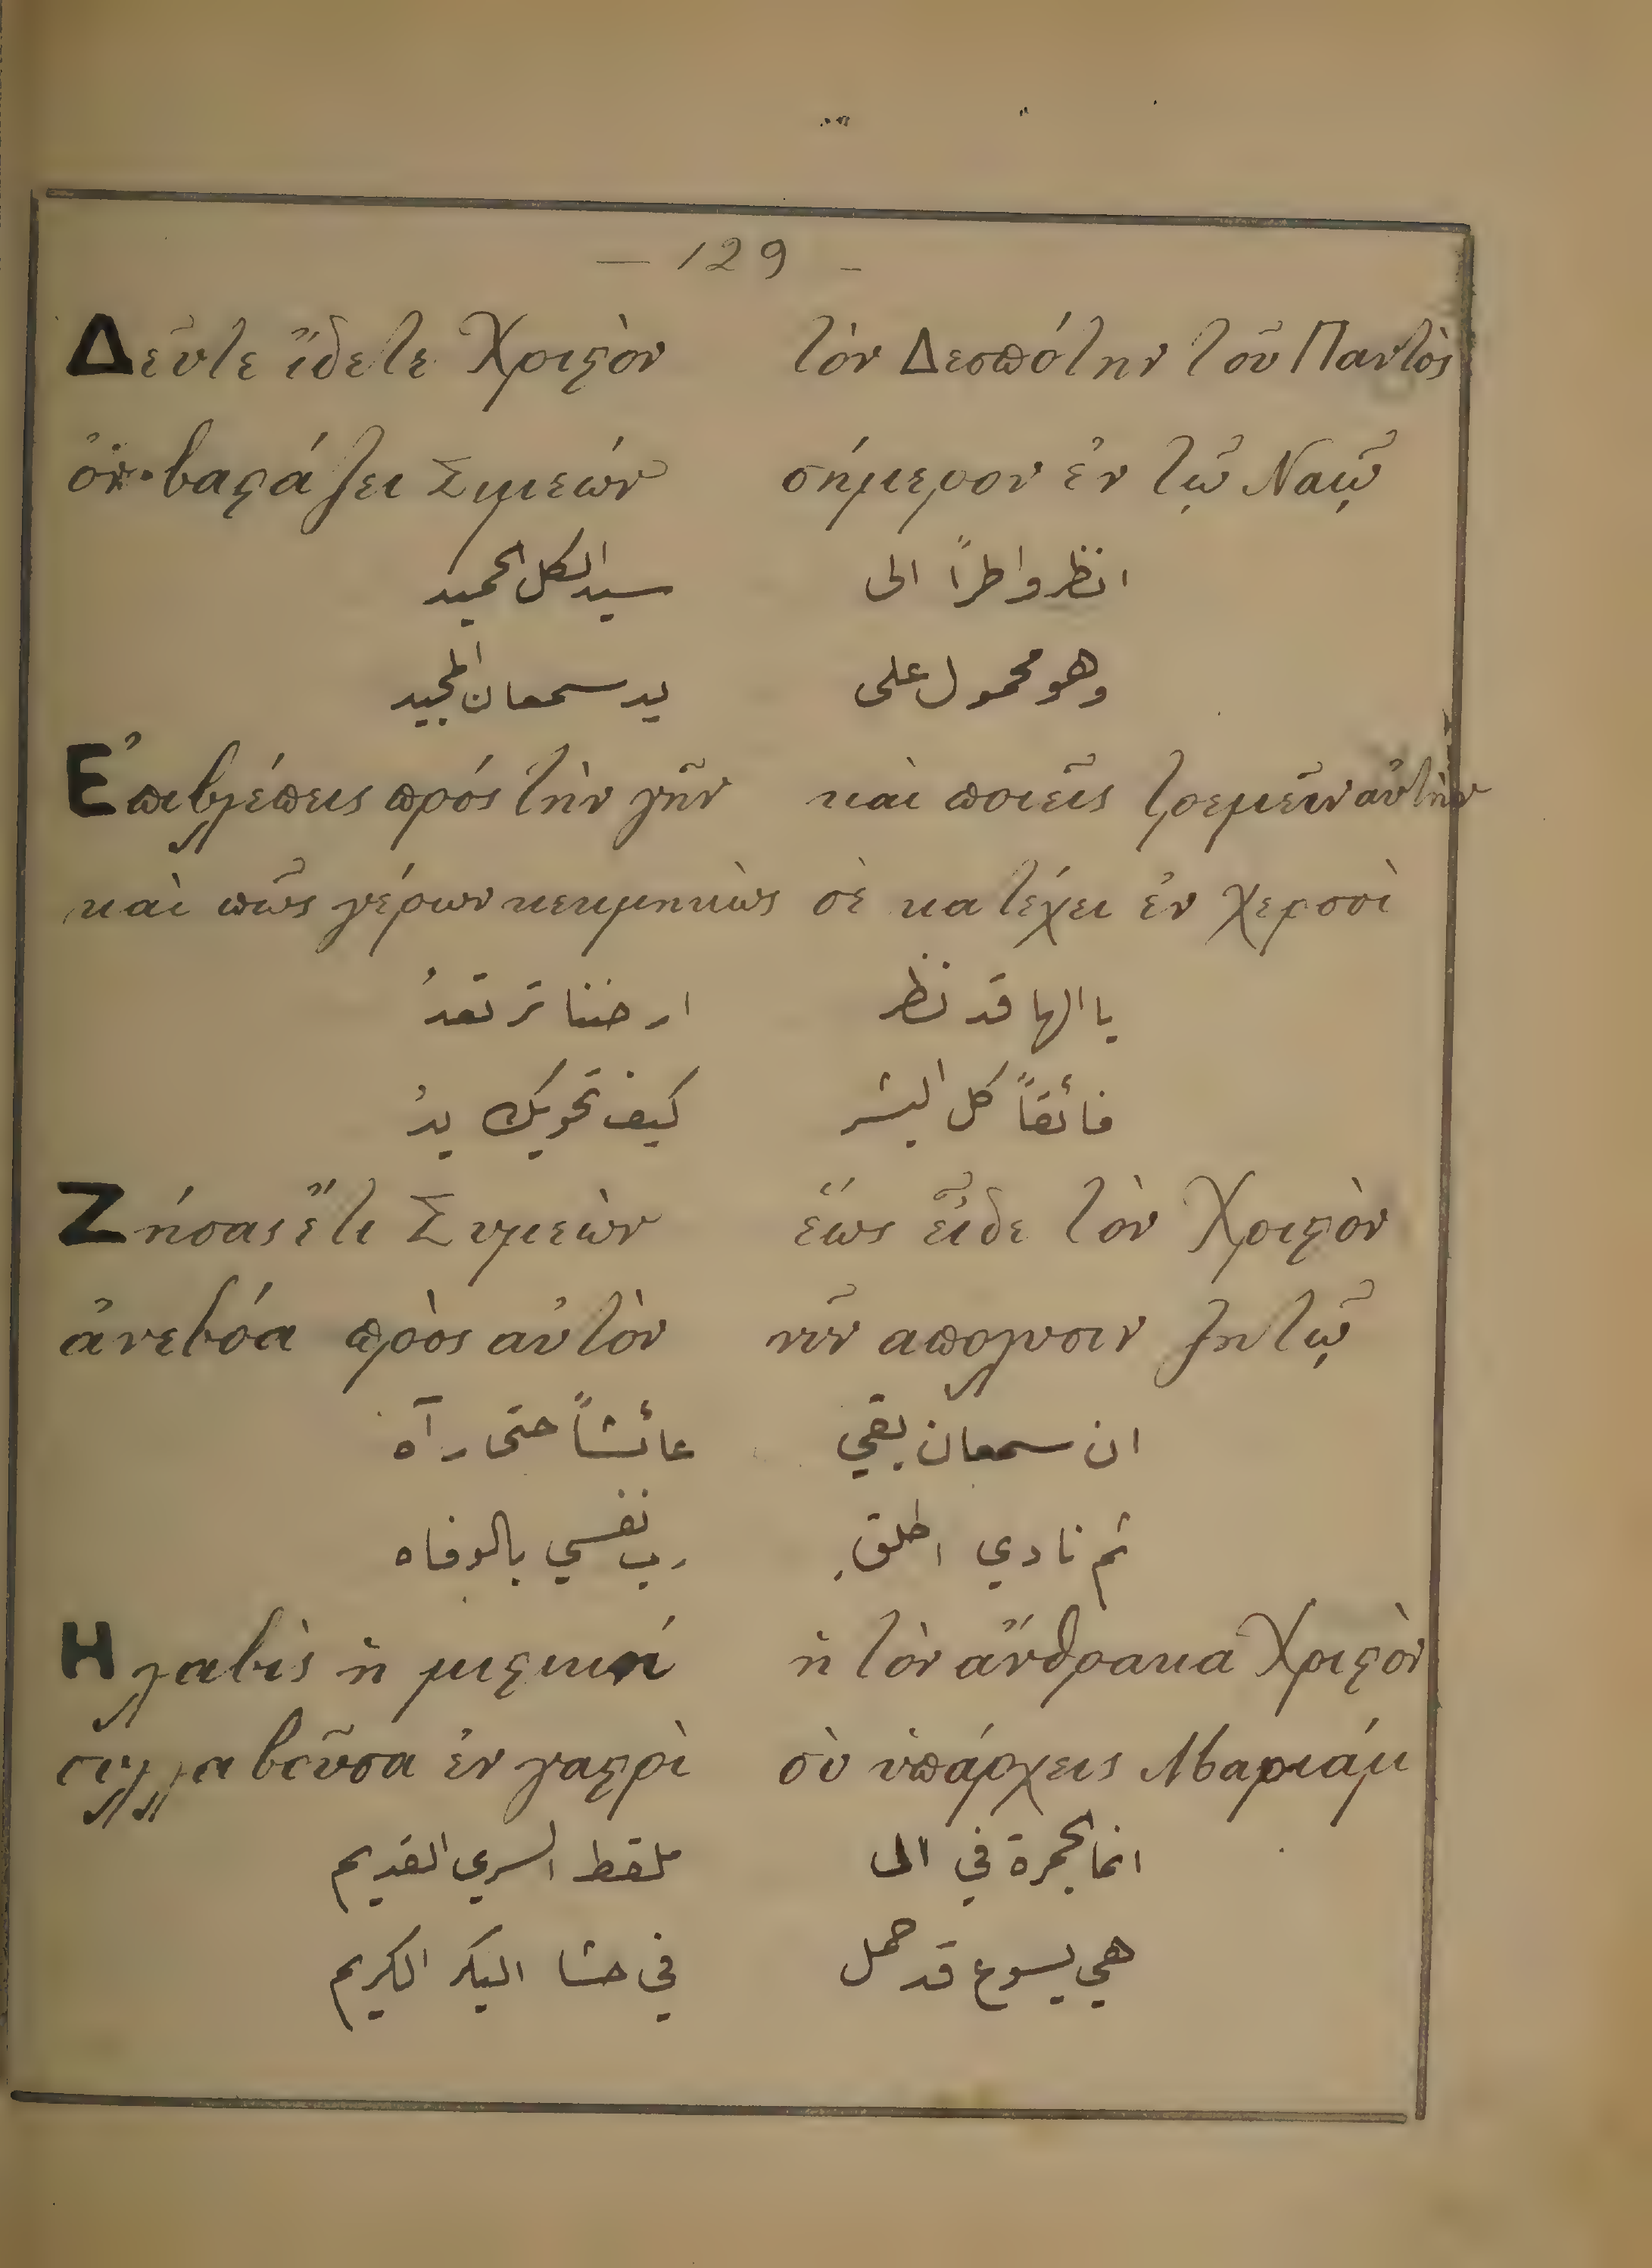 — 129 -
Δεῦτε ἴδετε Χριϛὸν τὸν Δεσπότην τοῦ Παντὸς
ὃν βαϛάζει Συμεών σήμερον ἐν τῷ Ναῷ
انظروا طراً الى سيد الكل الحميد
وهو محمول على يد سمعان المجيد
Ἐπιβλέπεις πρός τὴν γῆν καὶ ποιεῖς τρεμεῖν αὐτὴν
καὶ πῶς γέρων κεκμηκὼς σὲ κατέχει ἐν χερσσὶ
يا الها قد نظر ارضنا ترتعدُ
فائقاً كل البشر كيف تحويك يدُ
Ζήσας ἔτι Συμεὼν ἕως εἶδε τὸν Χριϛὸν
ἀνεβόα πρὸς αὐτὸν νῦν απολυσιν ζητῶ
ان سمعان بقي عائشاً حتى رآه
ثم نادي اطلقِ رب نفسي بالوفاه
Η λαβὶς ἡ μυϛικὴ ἡ τὸν ἄνθρακα Χριϛὸν
συλλαβοῦσα ἐν γαϛρὶ σὺ ὑπάρχεις Μαριάμ
انما الجمرة في الى ملقط السري القديم
هي يسوع قد حمل في حشا البكر الكريم